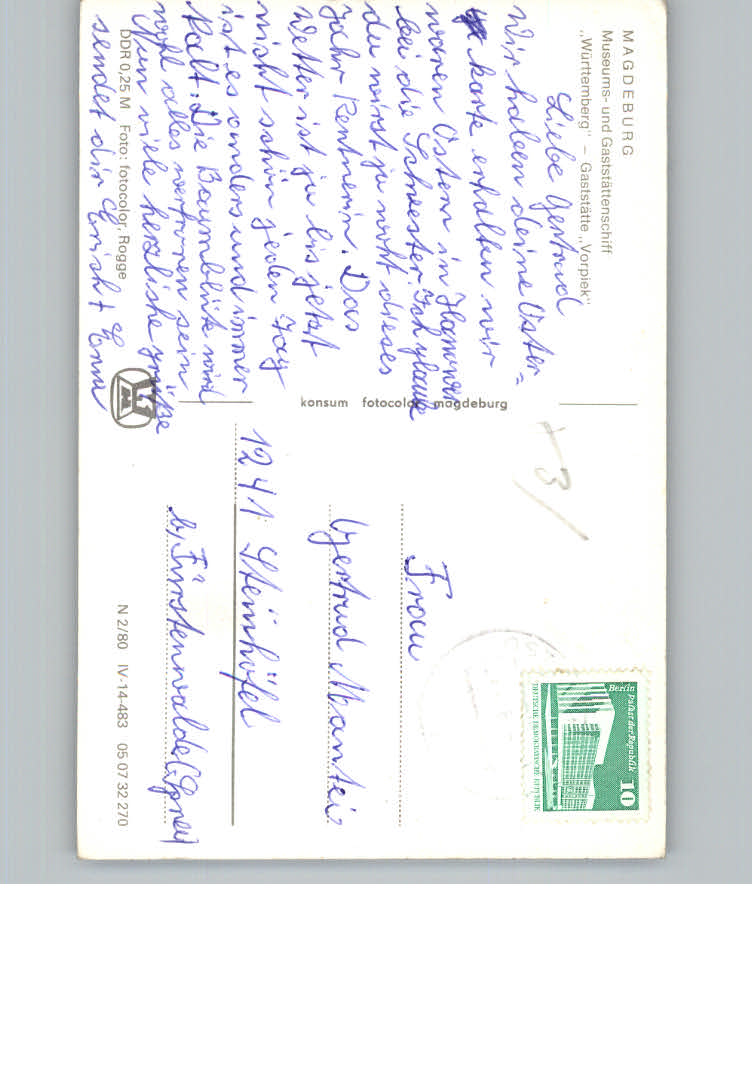 MAGDEBURG
Museums- und Gaststättenschiff
„Württemberg" – Gaststätte „Vorpiek"
Liebe Gertrud
Wir haben deine Oster=
karte erhalten wir
waren Ostern in Hannover
bei die Schwester. Ich glaube
du wirst ja noch dieses
Jahr Rentnerin. Das
Wetter ist ja bis jetzt
nicht schön jeden Tag
ist es anders und immer
kalt. Die Baumblüte wird
wohl alles verfroren sein
Nun viele herzliche grüße
sendet dir Erich +
DDR 0,25 M Foto: fotocolor, Rogge
konsum fotocolor magdeburg
+3/
Frau
Gertrud Mantei
1241 Steinhöfel
b, Fürstenwalde (Spree)
N 2/80 IV-14-483 05 07 32 270
Berlin Palast der Republik
10
DEUTSCHE DEMOKRATISCHE REPUBLIK